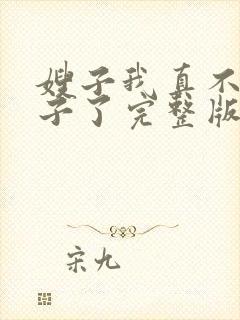 嫂子我真不
子了完整版
宋九